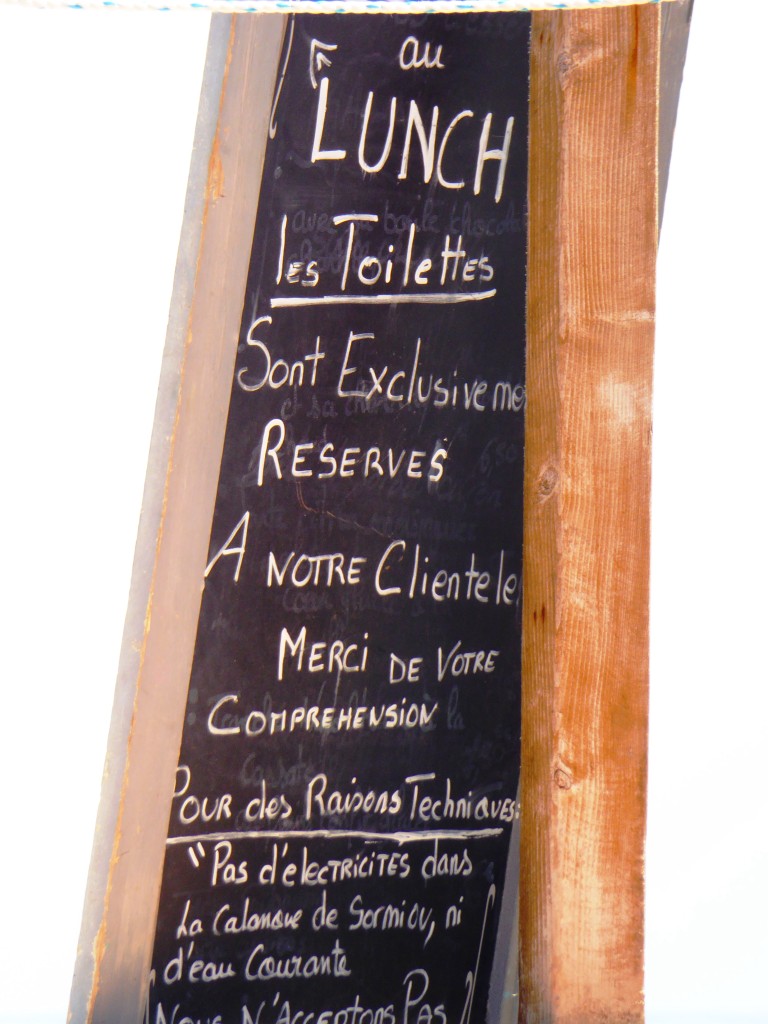 au
LUNCH
les Toilettes
Sont Exclusiveme
RESERVES
A NOTRE Clientele
MERCI DE VOTRE
COMPREHENSION
POUR des Raisons Techniques:
"Pas d'électricites dans
La Calanque de Sormiou, ni
d'eau Courante
Nous N'Acceptons Pas